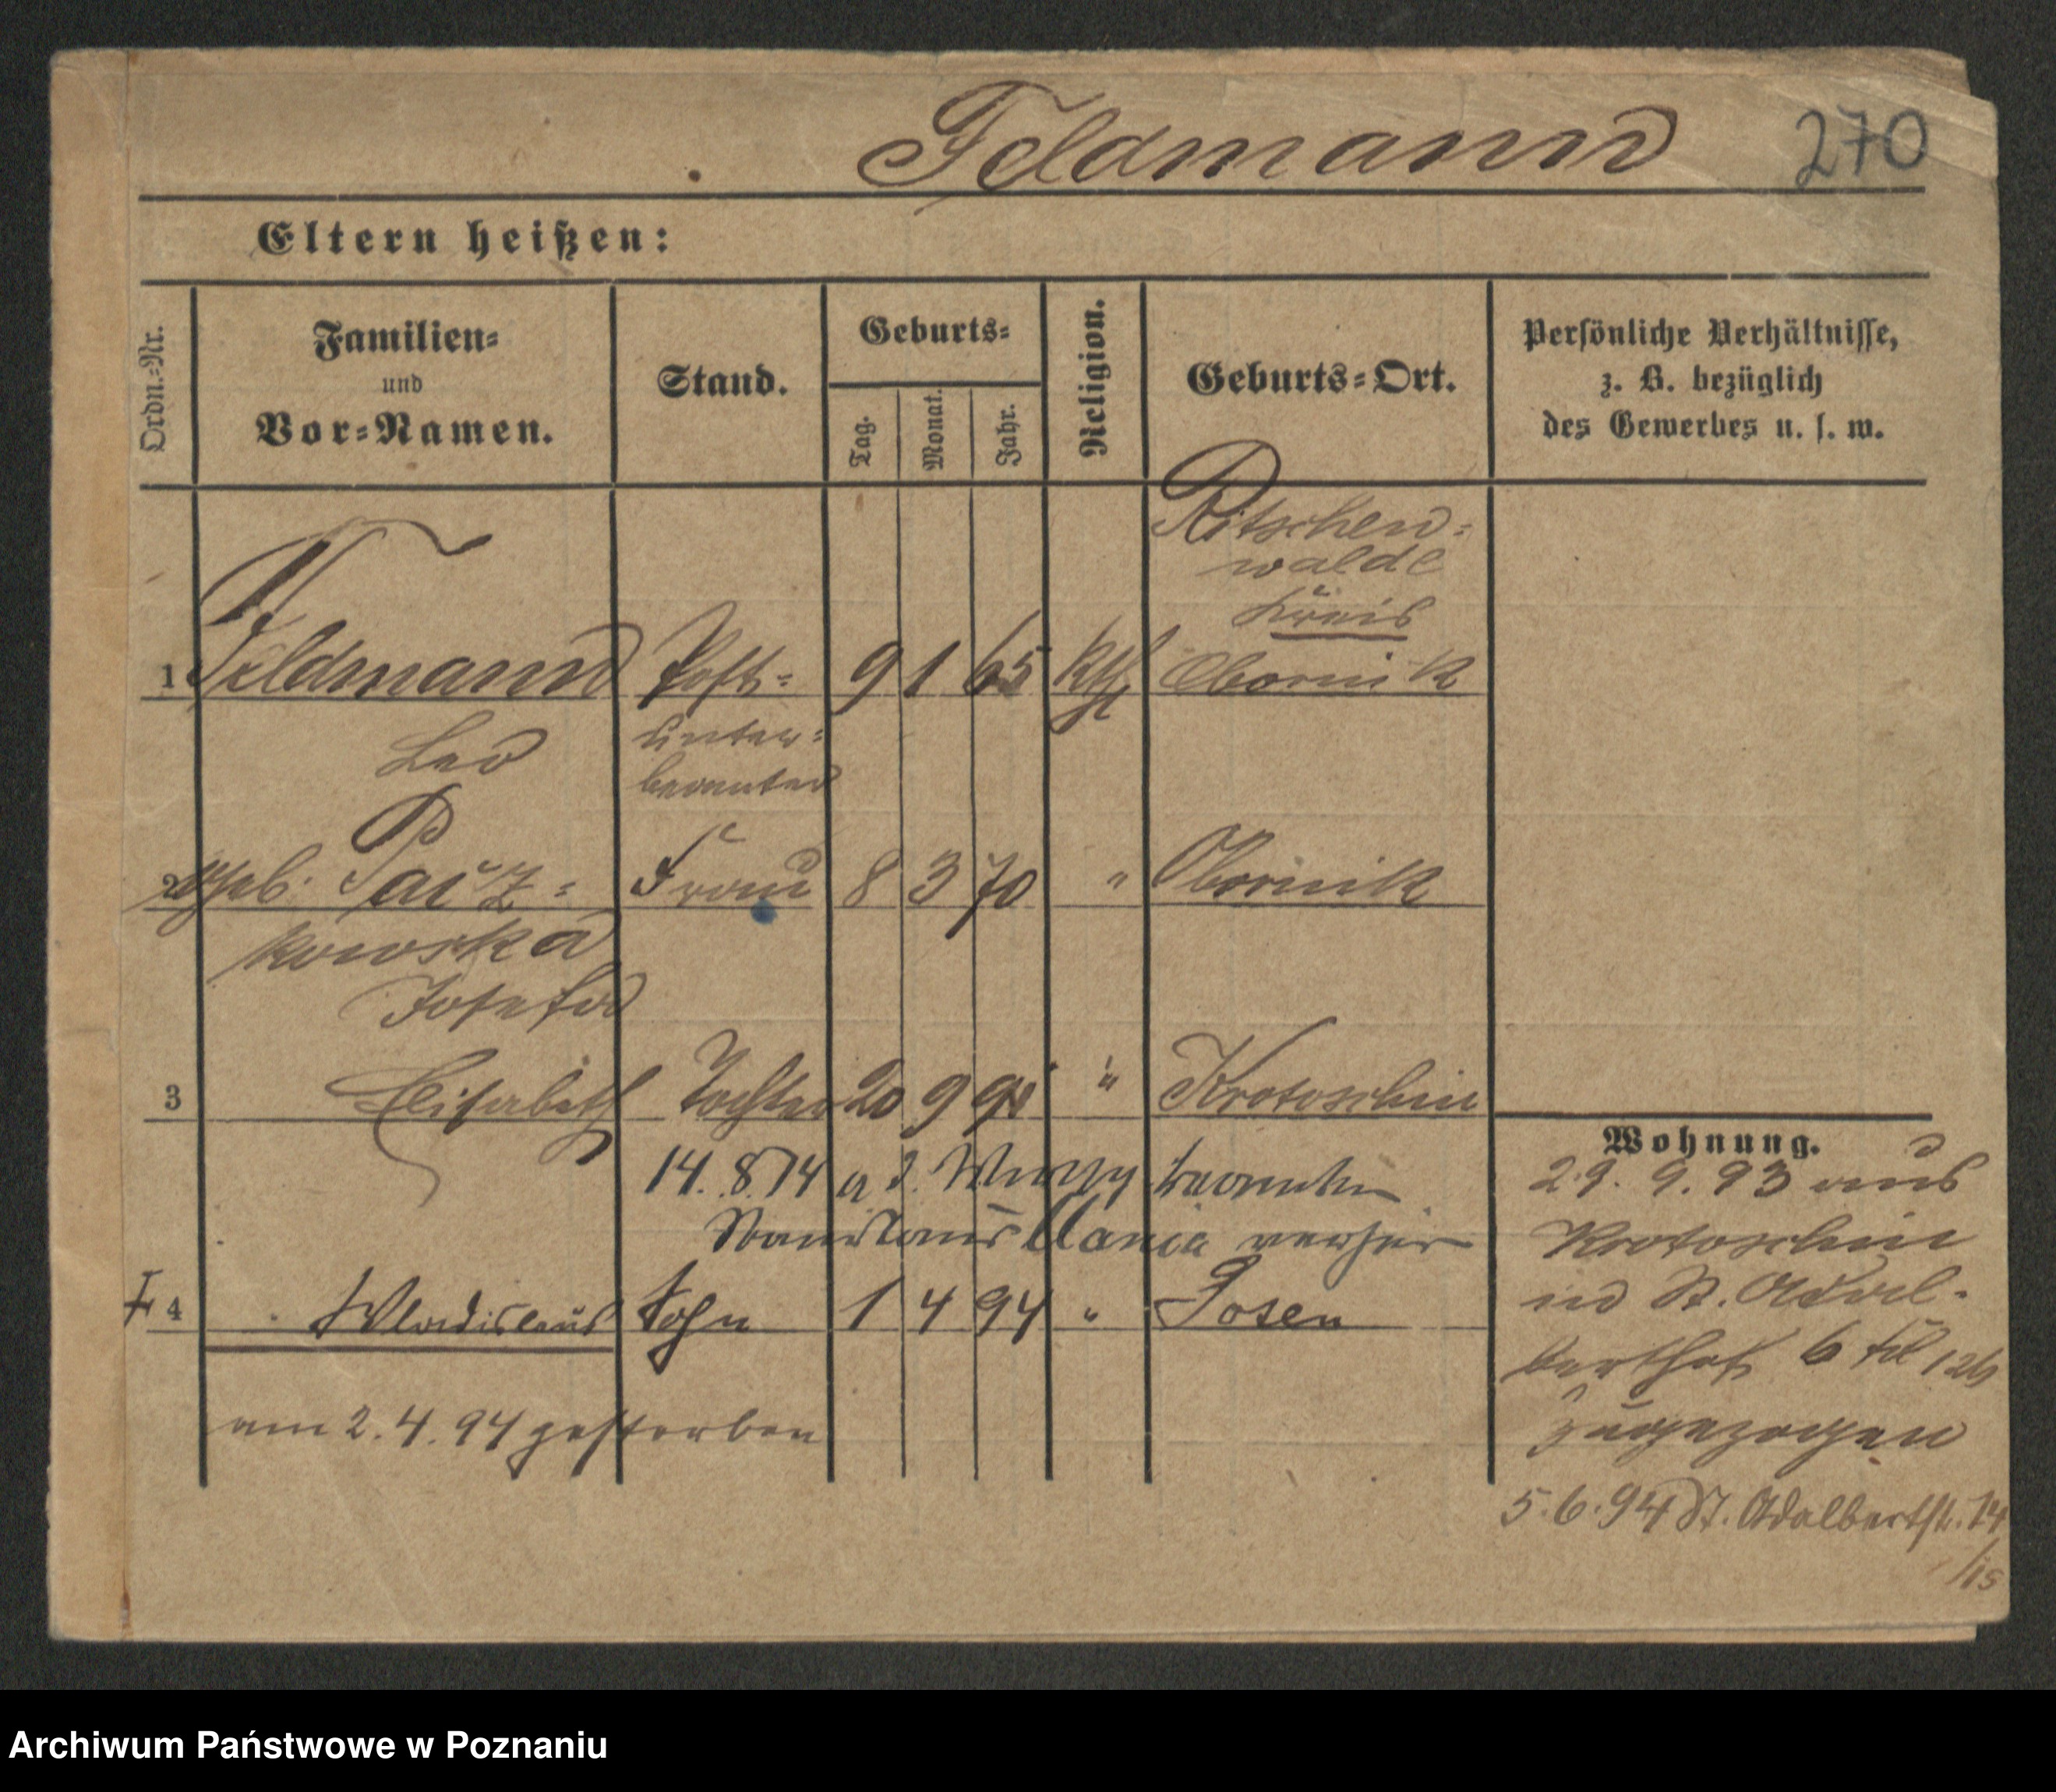 Feldmann 270
Eltern heißen:
Ordn.-Nr.
Familien-
und
Vor-Namen.
Stand.
Geburts-
Tag.
Monat.
Jahr.
Religion.
Geburts-Ort.
Persönliche Verhältnisse,
z. B. bezüglich
des Gewerbes u. s. w.
Ritschen-
walde
Kreis
1 Feldmann Post- 9 1 65 Kth Obornik
Leo
unter-
beamter
2 geb. Paúz- Frau 8 3 70 " Obornik
kowska
Josefa
3 Elisabeth Tochter 20 9 " Krotoschin
14. 8. 14 a d.
Stanislaus Mania
4 Wladislaus Sohn 1 4 94 " Posen
am 2.4.94 gestorben
Wohnung.
29. 9. 93 aus
Krotoschin
in St. Adal-
6
zugezogen
5.6.94 St. Adalbertstr. 14
Archiwum Państwowe w Poznaniu